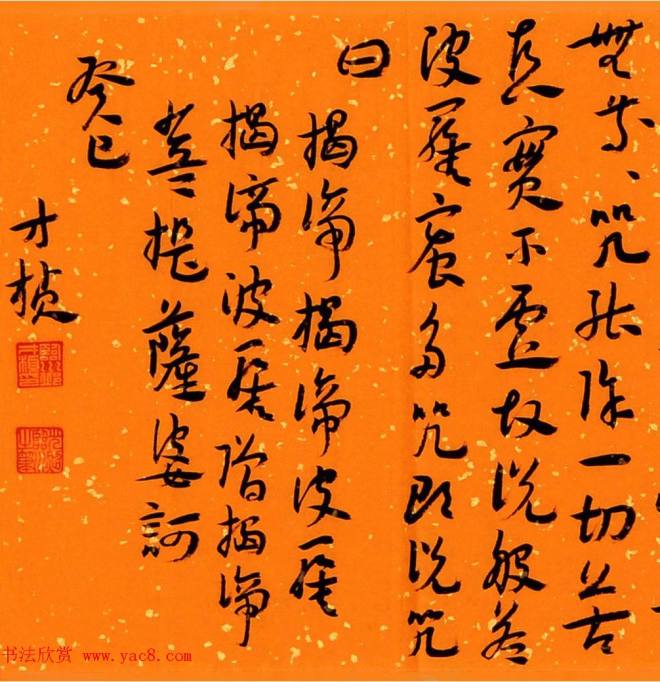 無等々咒能除一切苦
真實不虛故說般若
波羅蜜多咒即說咒
曰
揭諦揭諦波羅
揭諦波羅僧揭諦
菩提薩婆訶
癸巳
才楨
书法欣赏 www.yac8.com